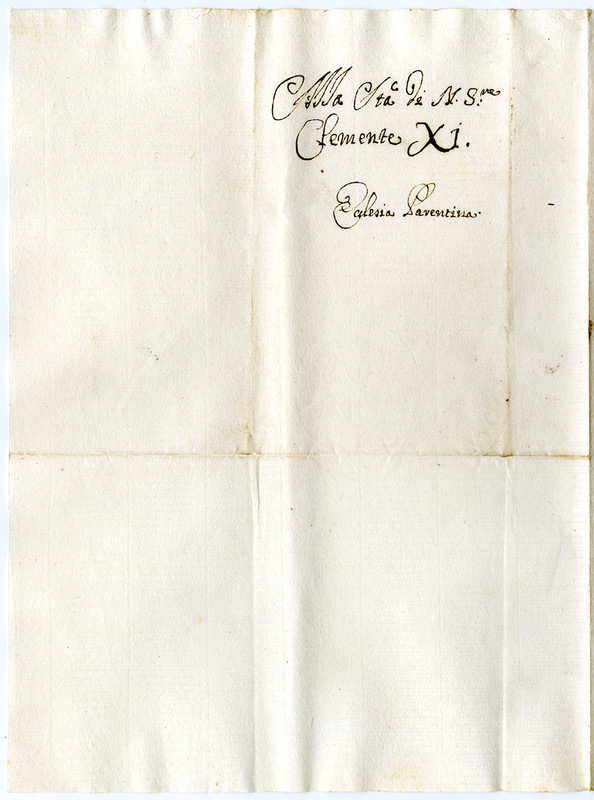 Alla Sta di N. S.re
Clemente XI.
Eglesia Parentina.